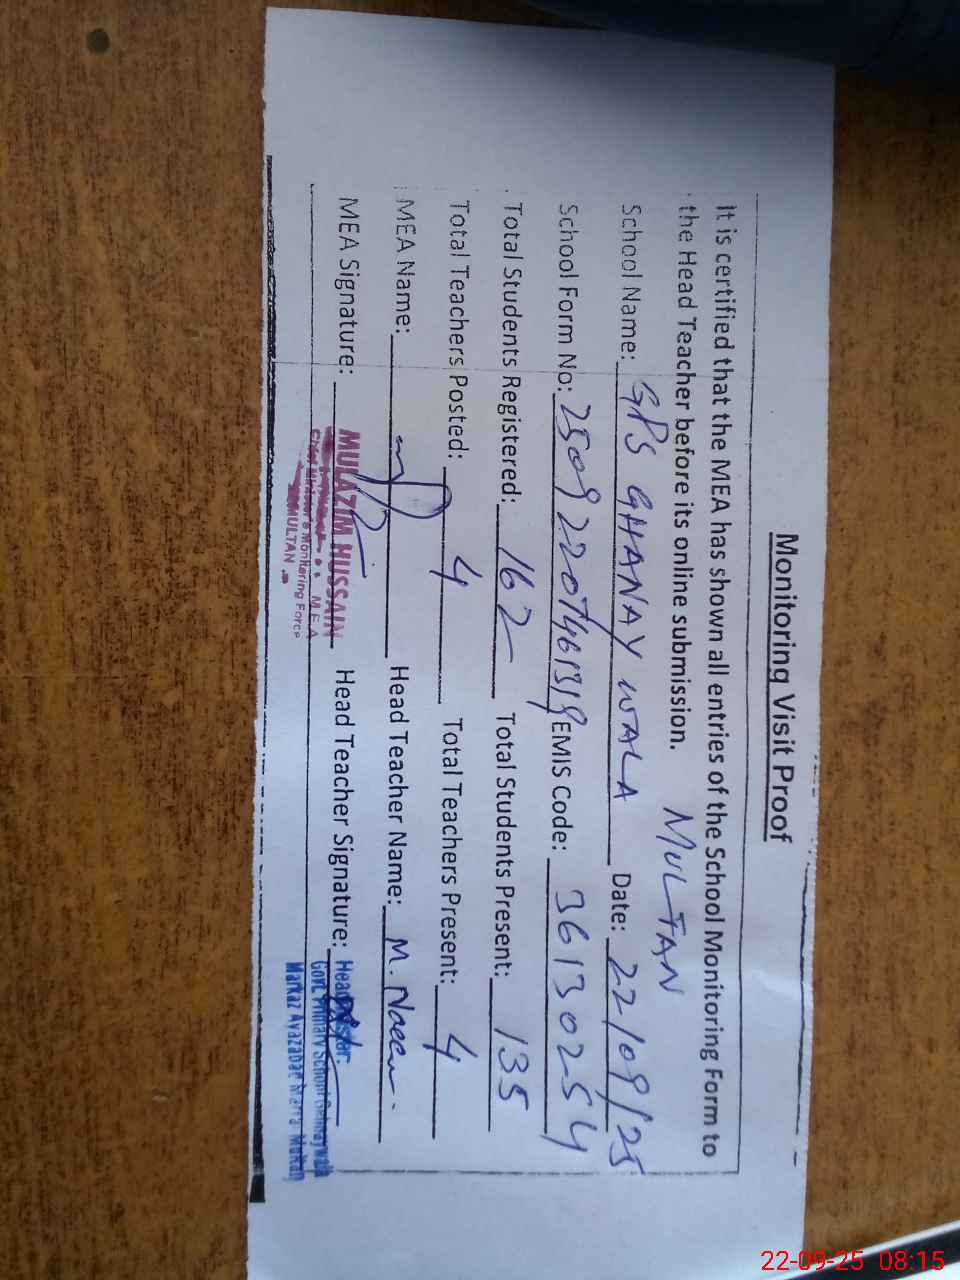 Monitoring Visit Proof
It is certified that the MEA has shown all entries of the School Monitoring Form to
the Head Teacher before its online submission. MULTAN
School Name: GPS GHANAY WALA Date: 22/09/25
School Form No: EMIS Code: 36130254
Total Students Registered: 162 Total Students Present: 135
Total Teachers Posted: 4 Total Teachers Present: 4
MEA Name: Head Teacher Name: M. Naeem.
MEA Signature: MULAZIM HUSSAIN Head Teacher Signature:
M.E.A
Chief Minister's Monitoring Force
MULTAN
Govt. Primary School
Markaz Ayazabad Marral Multan
22-09-25 08:15